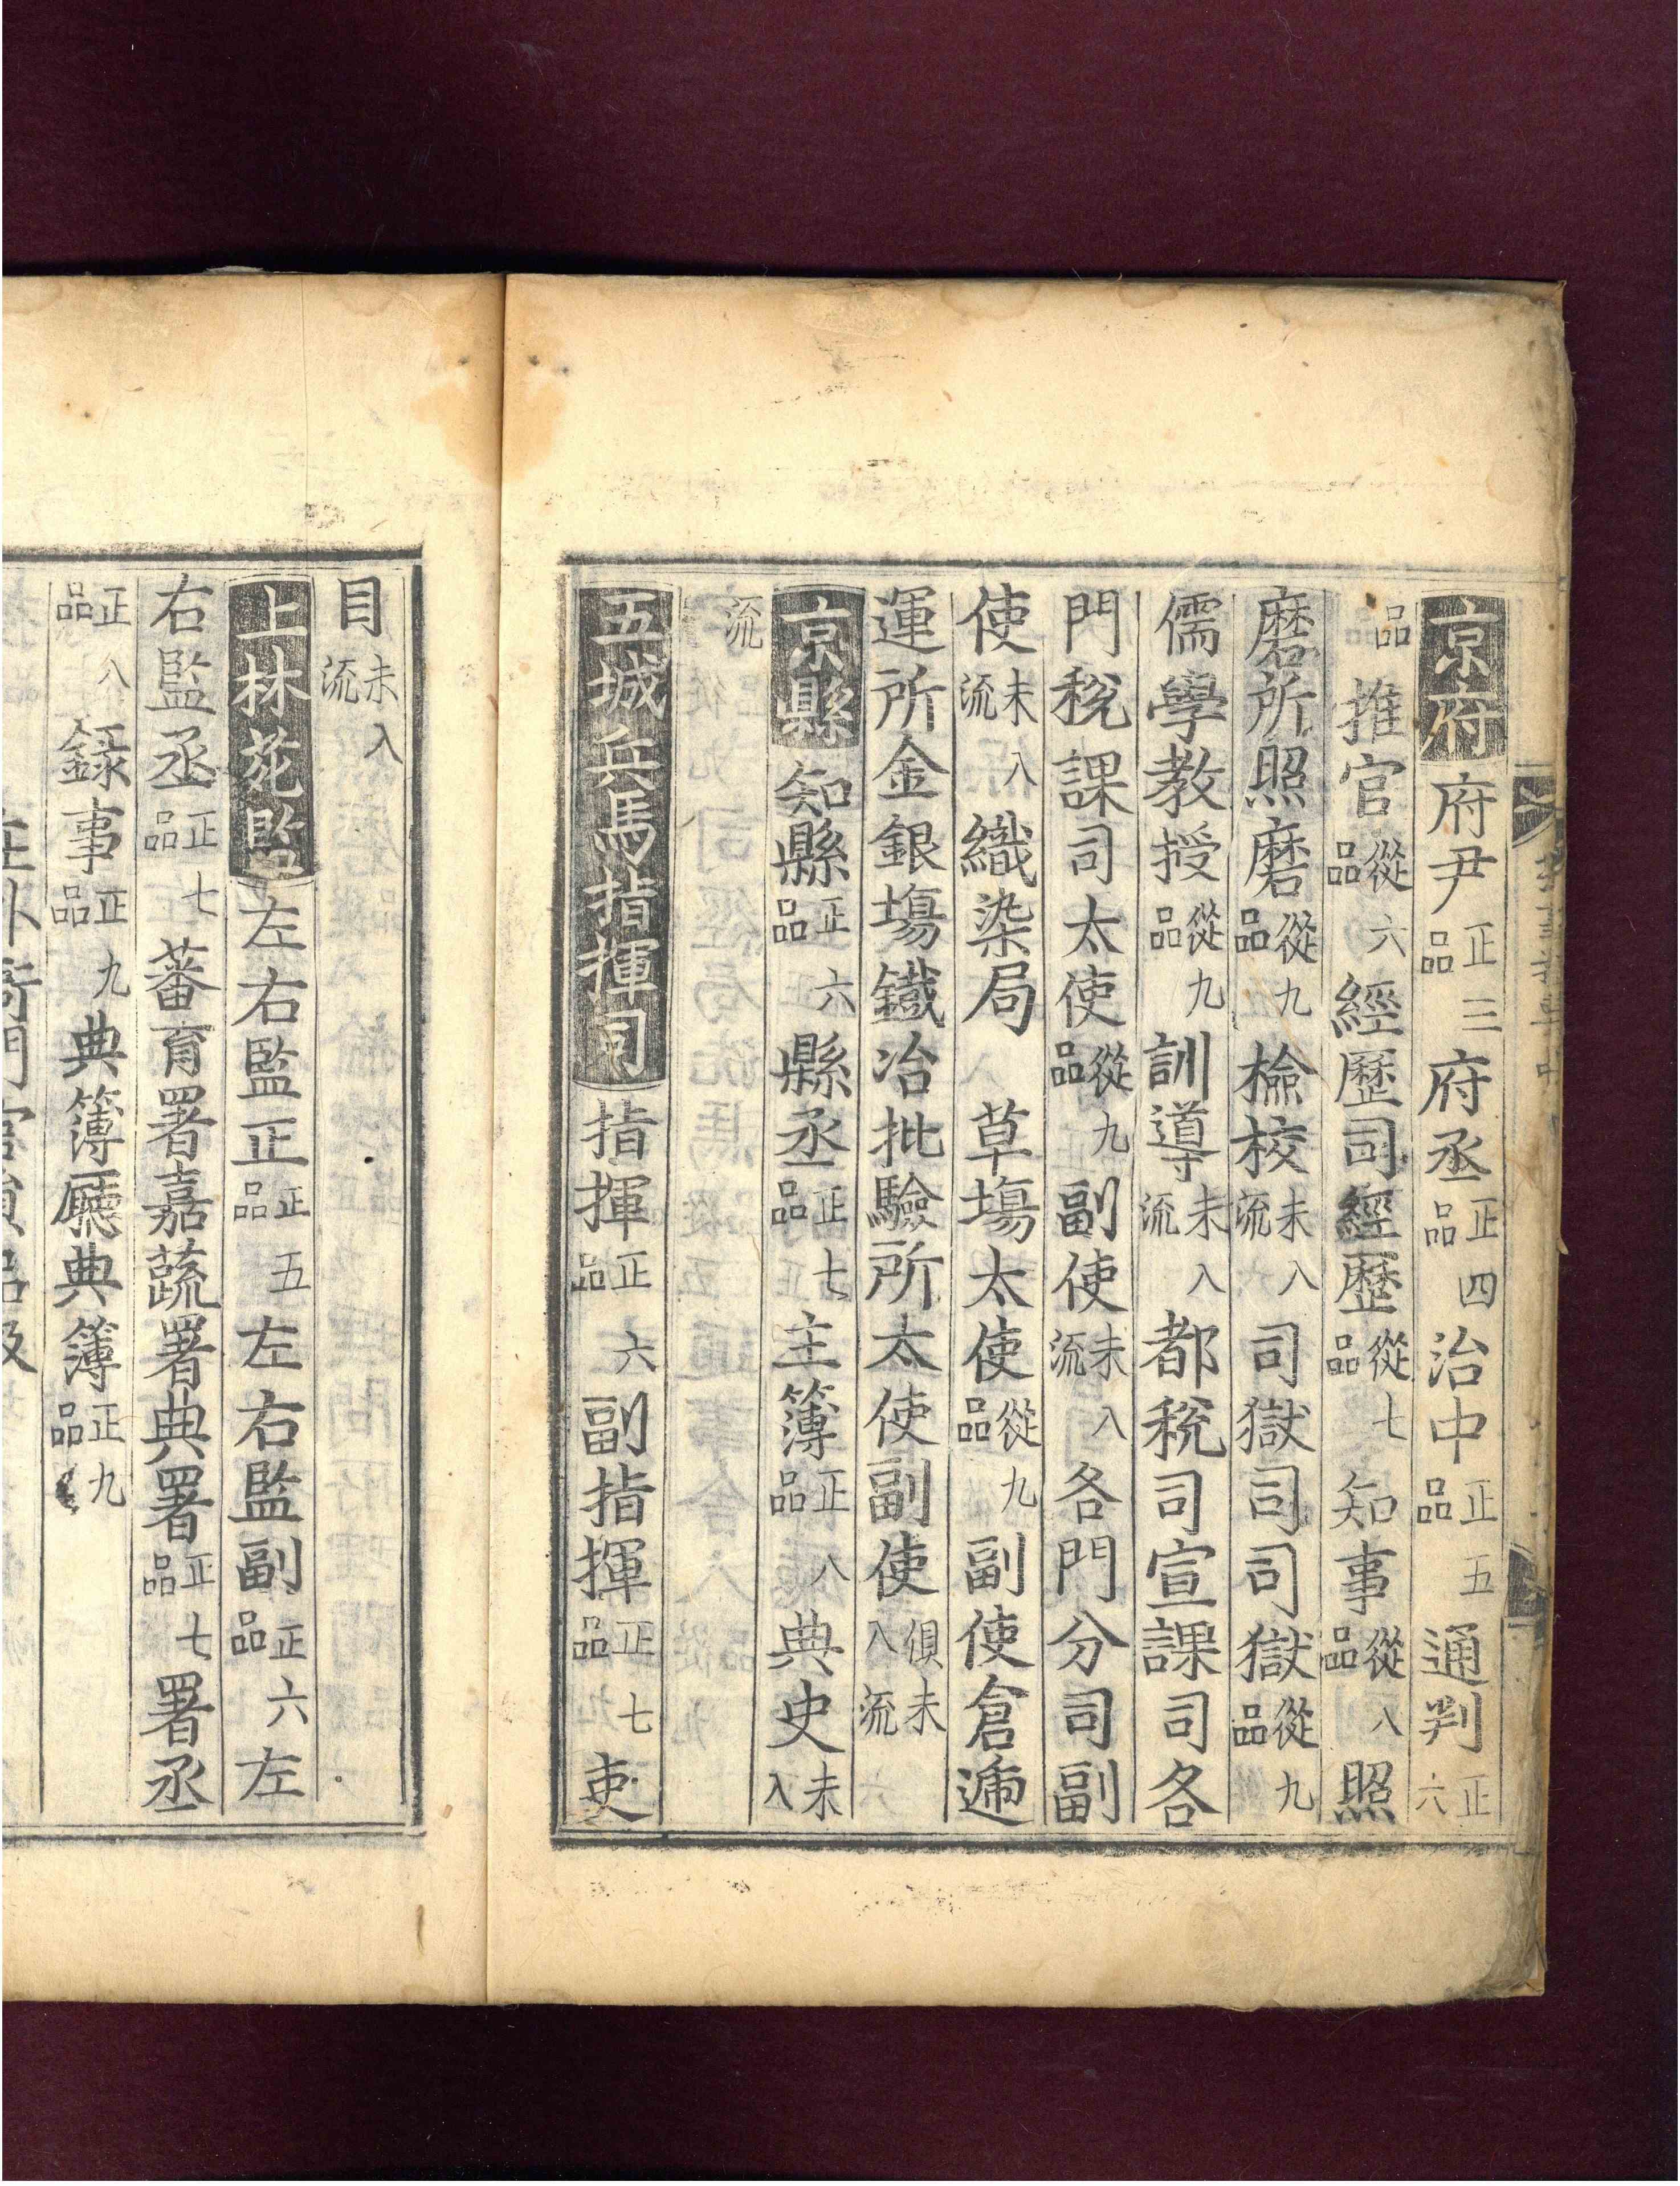 京府府尹正三品府丞正四品治中正五品通判正六
品推官從六品經歷司經歷從七品知事從八品照
磨所照磨從九品檢校未入流司獄司司獄從九品
儒學教授從九品訓導未入流都稅司宣課司各
門稅課司太使從九品副使未入流各門分司副
使未入流織染局草塲太使從九品副使倉遞
運所金銀塲鐵冶批驗所太使副使俱未入流
京縣知縣正六品縣丞正七品主簿正八品典史未入
流
五城兵馬指揮司指揮正六品副指揮正七品吏
目未入流
上林苑監左右監正正五品左右監副正六品左
右監丞正七品蕃育署嘉蔬署典署正七品署丞
正八品錄事正九品典簿廳典簿正九品